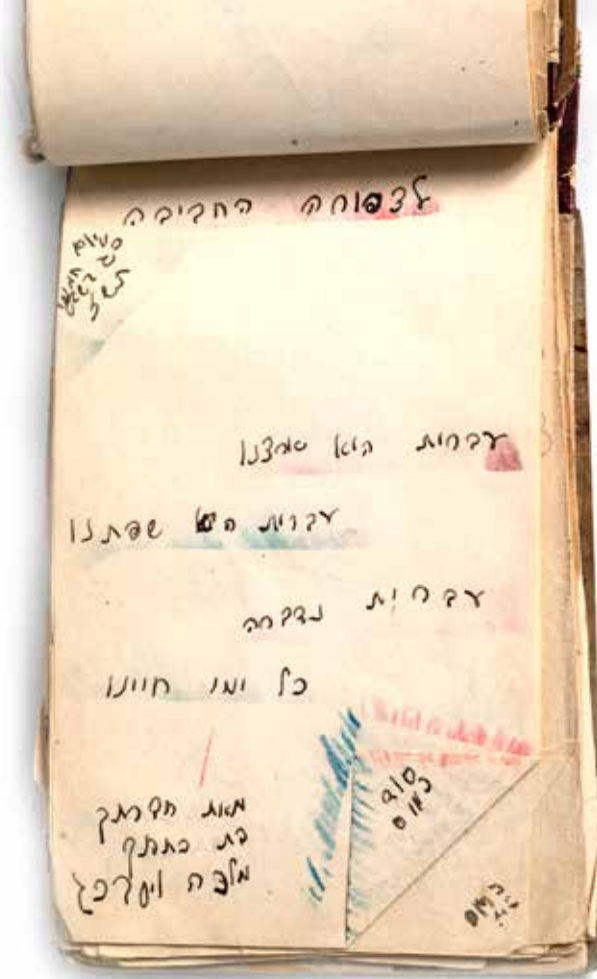 לצפורה החביבה
עברית היא ארצנו
עברית היא שפתנו
עברית נדברה
כל ימי חיינו
מאת חברתך
בת כתתך
מלכה
סוד
כמוס